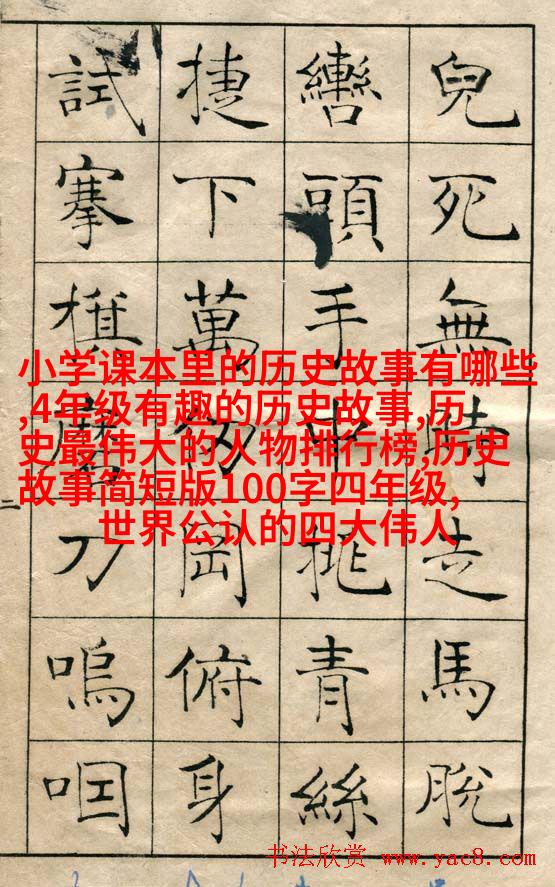 兒死無時走馬脫
轡頭手中挑青絲
捷下萬仞岡俯身
試搴旗磨刀嗚咽
小学课本里的历史故事有哪些
,4年级有趣的历史故事,历
史最伟大的人物排行榜,历史
故事简短版100字四年级,
世界公认的四大伟人
书法欣赏 www.yac8.com